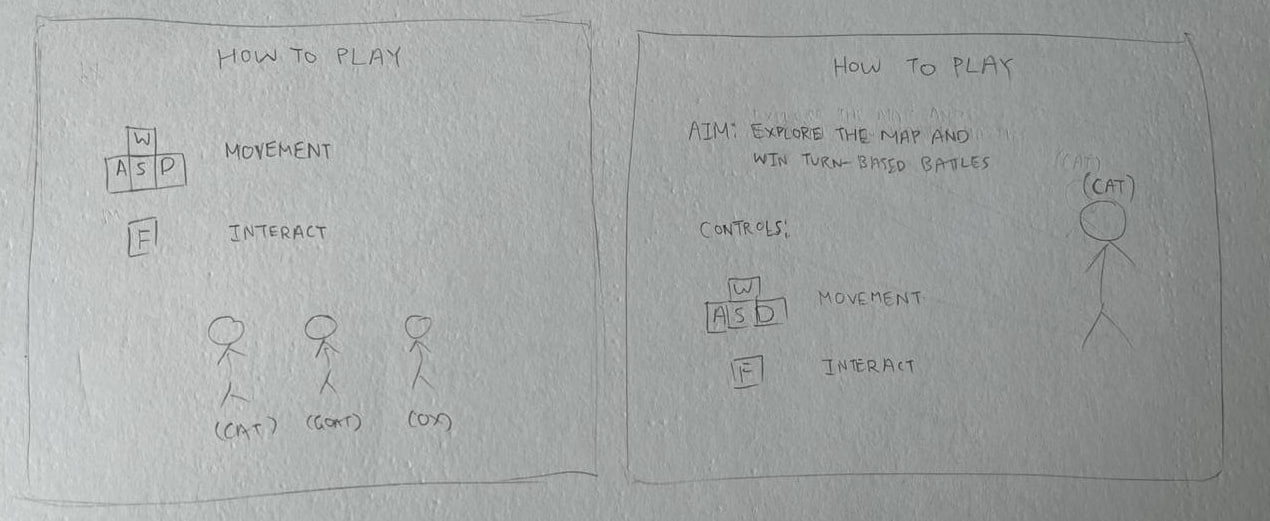 HOW TO PLAY
W
A S D
MOVEMENT
F
INTERACT
(CAT) (GOAT) (OX)
HOW TO PLAY
AIM: EXPLORE THE MAP AND
WIN TURN-BASED BATTLES
(CAT)
CONTROLS:
W
A S D
MOVEMENT
F
INTERACT